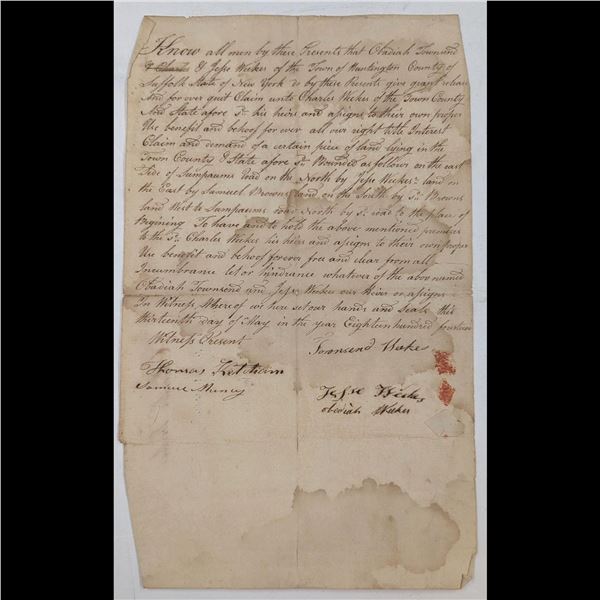 Know all men by these Presents that Obadiah Townsend
& Jesse Weekes of the Town of Huntington County of
Suffolk State of New York do by these Presents give grant release
And for ever quit Claim unto Charles Weekes of the Town County
And State afore sd. his heirs and assigns to their own proper
Use benefit and behoof for ever all our right title Interest
Claim and demand of a certain piece of land lying in the
Town County & State afore sd. Bounded as follows on the east
Side of Sumpaums road on the North by Jesse Weekes land on
the East by Samuel Browns land on the South by sd. Browns
land West to Sumpaums road North by sd. road to the place of
Begining To have and to hold the above mentioned premises
to the sd. Charles Weekes his heirs and assigns to their own proper
Use benefit and behoof forever free and clear from all
Incumbrance let or hindrance whatever of the above named
Obadiah Townsend and Jesse Weekes our heirs or assigns
In Witness Whereof we here set our hands and Seals this
thirteenth day of May in the year Eighteen hundred fourteen
Witness Present
Townsend Weekes
Thomas Ketcham
Samuel Muncy
Jesse Weekes
obadiah Weekes